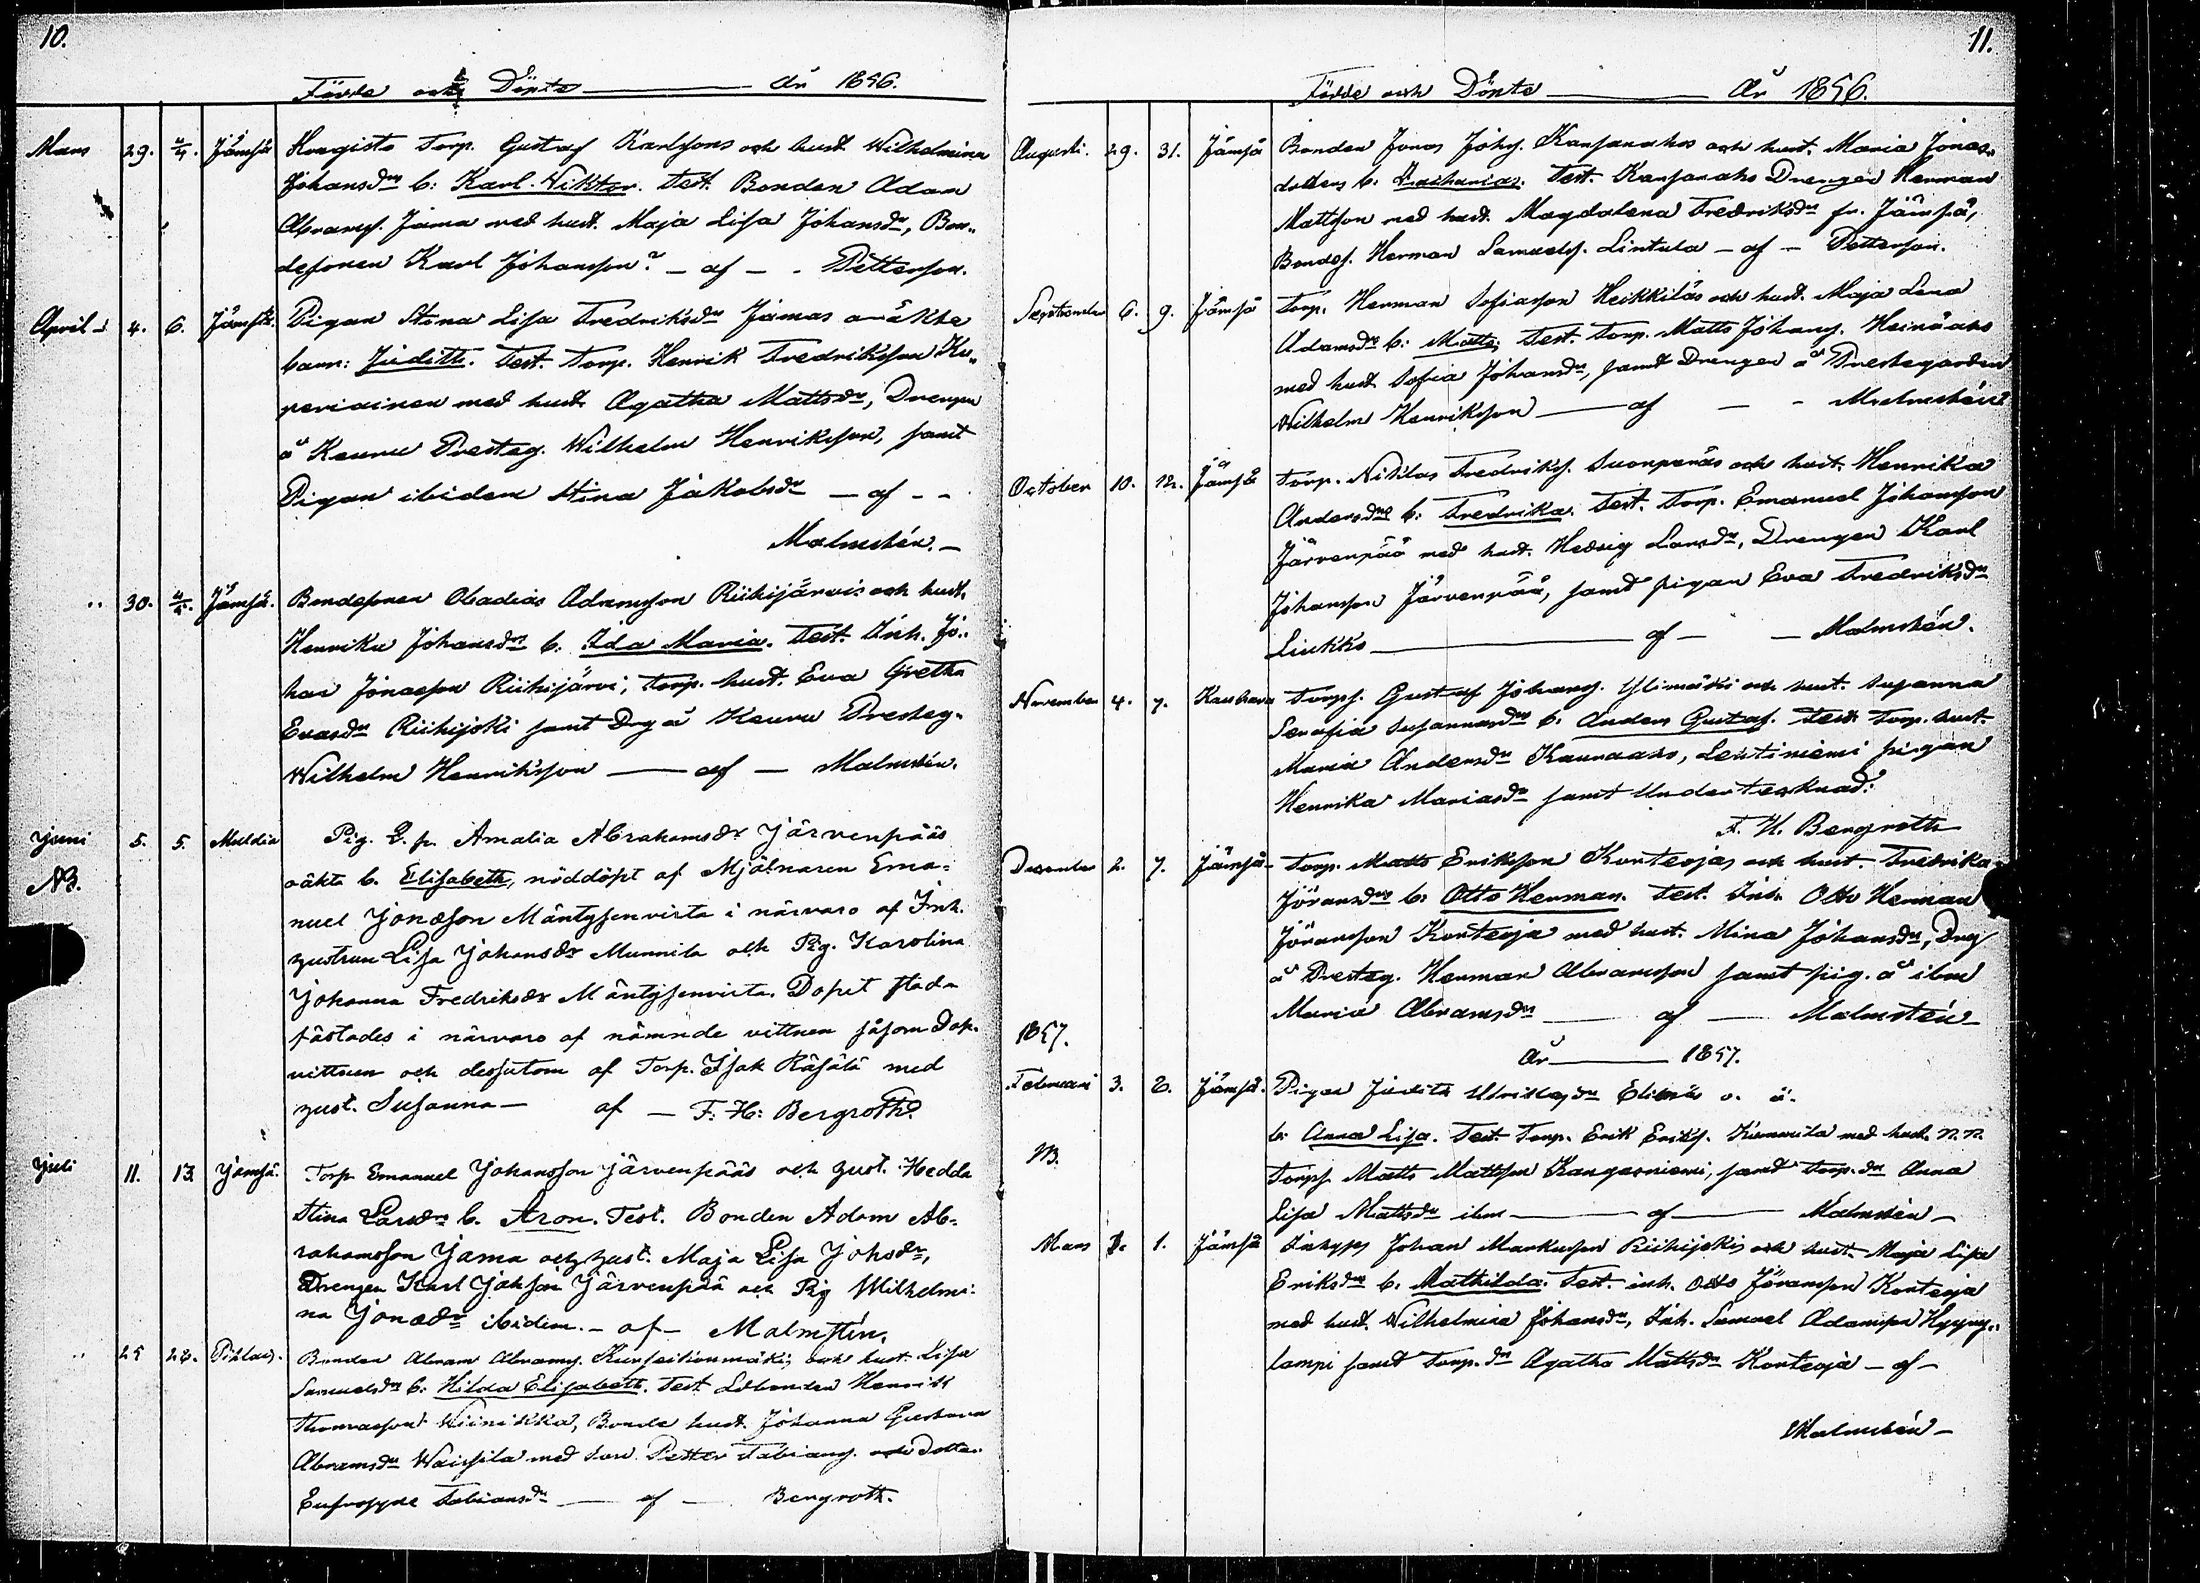 10.
Födde och Döpte — År 1856.
Mars 29. 2/4. Jämsä Torp. Gustaf Karlssons och hust. Wilhelmina
Johansdrs b: Karl Wiktor. Test. Bonden Adam
Abrams. Jama med hust. Maja Lisa Johansdr, Bon-
desonen Karl Johansson — af — Pettersson.
April 4. 6. Jämsä. Pigan Stina Lisa Fredriksdr Jämas oäkta
barn: Judith. Test. Torp. Henrik Fredriksson
med hust. Agatha Mattsdr, Drengen
å Keuru Presteg. Wilhelm Henriksson, samt
Pigan ibidem Stina Jakobsdr — af —
Malmstén. —
" 30. Jämsä. Bondesonen Obadias Adamsson Riihijärvis och hust.
Henrika Johansdrs b. Ida Maria. Test. Inh. Jo-
han Jonasson Riihijärvi, Torp. hust. Eva Gretha
Evasdr Riihijoki samt Drg å Keuru Presteg.
Wilhelm Henriksson — af — Malmstén.
Juni 5. 5. Multia Pig. L. p. Amalia Abrahamsdr Järvenpääs
NB. oäkta b. Elisabeth, nöddöpt af Mjölnaren Ema-
nuel Jonasson Mäntysenvirta i närvaro af Inh.
hustrun Lisa Johansdr Munnila och Pig. Karolina
Johanna Fredriksdr Mäntysenvirta. Dopet stad-
fästades i närvaro af nämnde vittnen såsom Dop-
vittnen och dessutom af Torp. Isak Räsälä med
hust. Susanna — af — F. H. Bergroth.
Juli 11. 13. Jämsä. Torp. Emanuel Johansson Järvenpääs och hust. Hedda
Stina Larsdrs b. Aron. Test. Bonden Adam Ab-
rahamsson Jama och hust. Maja Lisa Johsdr,
Drengen Karl Johsson Järvenpää och Pig Wilhelmi-
na Jonædr ibidem. — af — Malmstén.
" 25 Bonden Abram Abrams. och hust. Lisa
Samuelsdrs b: Hilda Elisabeth. Test. Henrik
Thomasson Wiinikka, Bonde hust. Johanna Gustava
Abramsdr med son Petter Fabians. och Dotter
Eufrosyne Fabiansdr — af — Bergroth.
11.
Födde och Döpte — År 1856.
Augusti. 29. 31. Jämsä Bonden Jonas Johs. Kansanahos och hust. Maria Jonas-
dotters b. Zacharias. Test. Kansanaho Drengen Herman
Mattsson med hust. Magdalena Fredriksdr fr. Jämsä,
Bondes. Herman Samuels. Lintula — af — Pettersson.
September 6. 9. Jämsä Torp. Herman Sofiasson Heikkiläs och hust. Maja Lena
Adamsdrs b: Matts, Test. Torp. Matts Johans. Heinäaho
med hust. Sofia Johansdr, samt Drengen å Prestegården
Wilhelm Henriksson — af — Malmstén
October 10. 12. Jämsä Torp. Niklas Fredriks. Suonpenäs och hust. Henrika
Andersdrs b: Fredrika. Test. Torp. Emanuel Johansson
Järvenpää med hust. Hedvig Larsdr, Drengen Karl
Johansson Järvenpää, samt pigan Eva Fredriksdr
Liukko — af — Malmstén.
November 4. 7. Torps. Gustaf Johans. Ylimäki och hust. Susanna
Serafia Susannasdrs b. Anders Gustaf. Test. Torp. hust.
Maria Andersdr Kaunaaho, Lehtiniemi pigan
Henrika Mariasdr samt Undertecknad.
F. H. Bergroth
December 2. 7. Jämsä Torp. Matts Eriksson Korteojas och hust. Fredrika
Göransdrs b. Otto Herman. Test. Inh. Otto Herman
Göransson Korteoja med hust. Mina Johansdr, Drg
å Presteg. Herman Abramsson samt pig. å ibm
Maria Abramsdr — af — Malmstén
1857.
År — 1857.
Februari 3. 8. Jämsä. Pigan Judith Ulriksdr o. ä.
b. Anna Lisa. Test. Torp. Erik Eriks. Kummila med hust. N.N.
NB. Torps Matts Mattsson Kangasniemi, samt Torp. dr Anna
Lisa Mattsdr ibm — af — Malmstén —
Mars 1. Jämsä Johan Markusson Riihijokis och hust. Maja Lisa
Eriksdrs b. Mathilda. Test. inh. Otto Göransson Korteoja
med hust. Wilhelmina Johansdr, Inh. Samuel Adamsson Hyyry-
lampi samt Torp. dr Agatha Mattsdr Korteoja — af —
Malmstén —